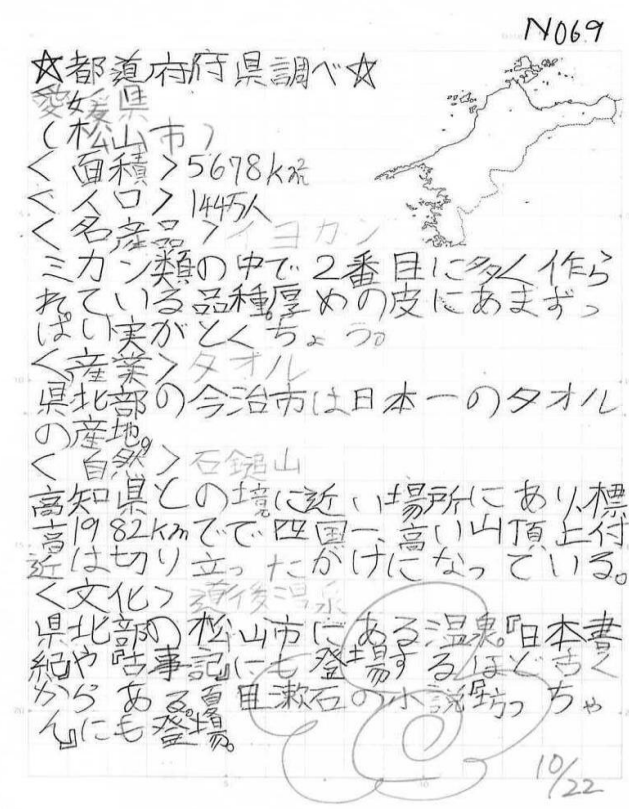 No69
☆都道府県調べ☆
愛媛県
(松山市)
<面積>5678km²
<人口>144万人
<名産品>イヨカン
ミカン類の中で2番目に多く作ら
れている品種。厚めの皮にあまずっ
ぱい実がとくちょう。
<産業>タオル
県北部の今治市は日本一のタオル
の産地。
<自然>石鎚山
高知県との境に近い場所にあり、標
高1982kmでで四国一、高い山頂上付
近は切り立ったがけになっている。
<文化>道後温泉
県北部の松山市にある温泉。『日本書
紀』や『古事記』にも登場するほど古く
からある。夏目漱石の小説『坊っちゃ
ん』にも登場。
10/22